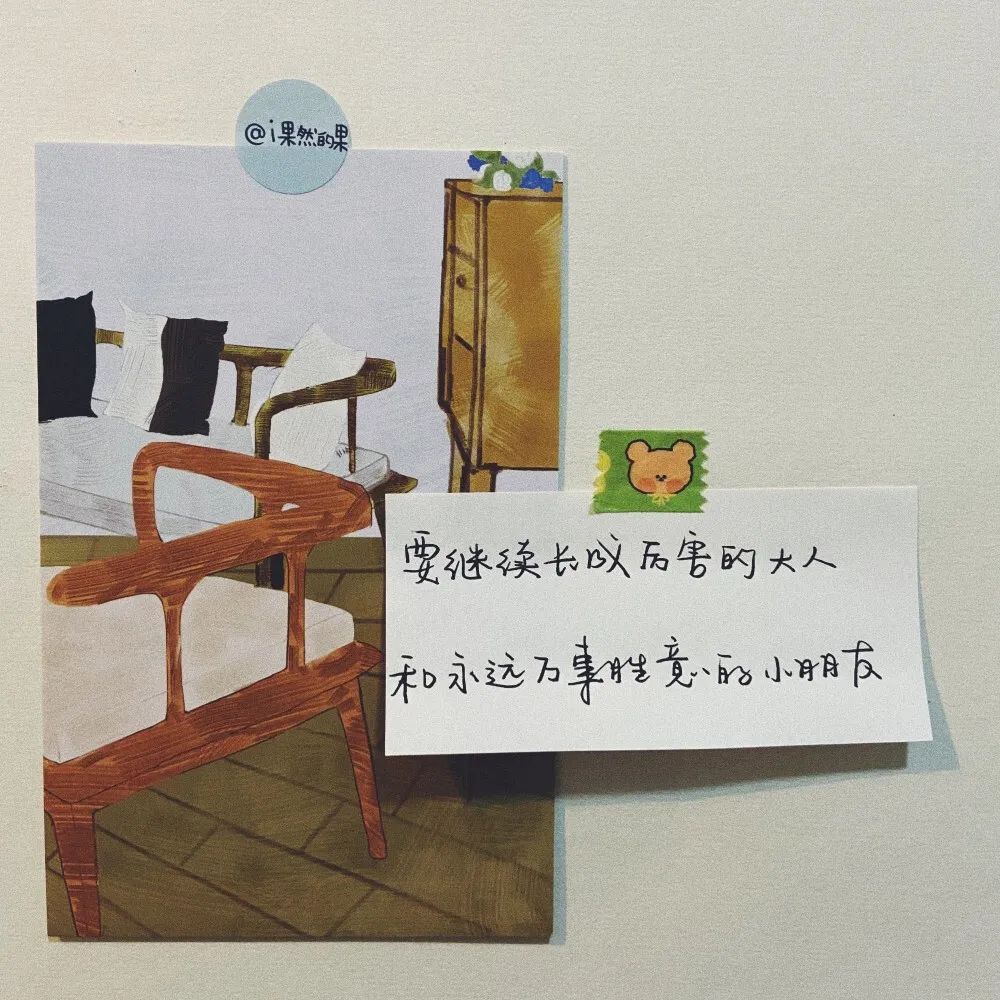 @i果然的果
要继续长成厉害的大人
和永远万事胜意的小朋友